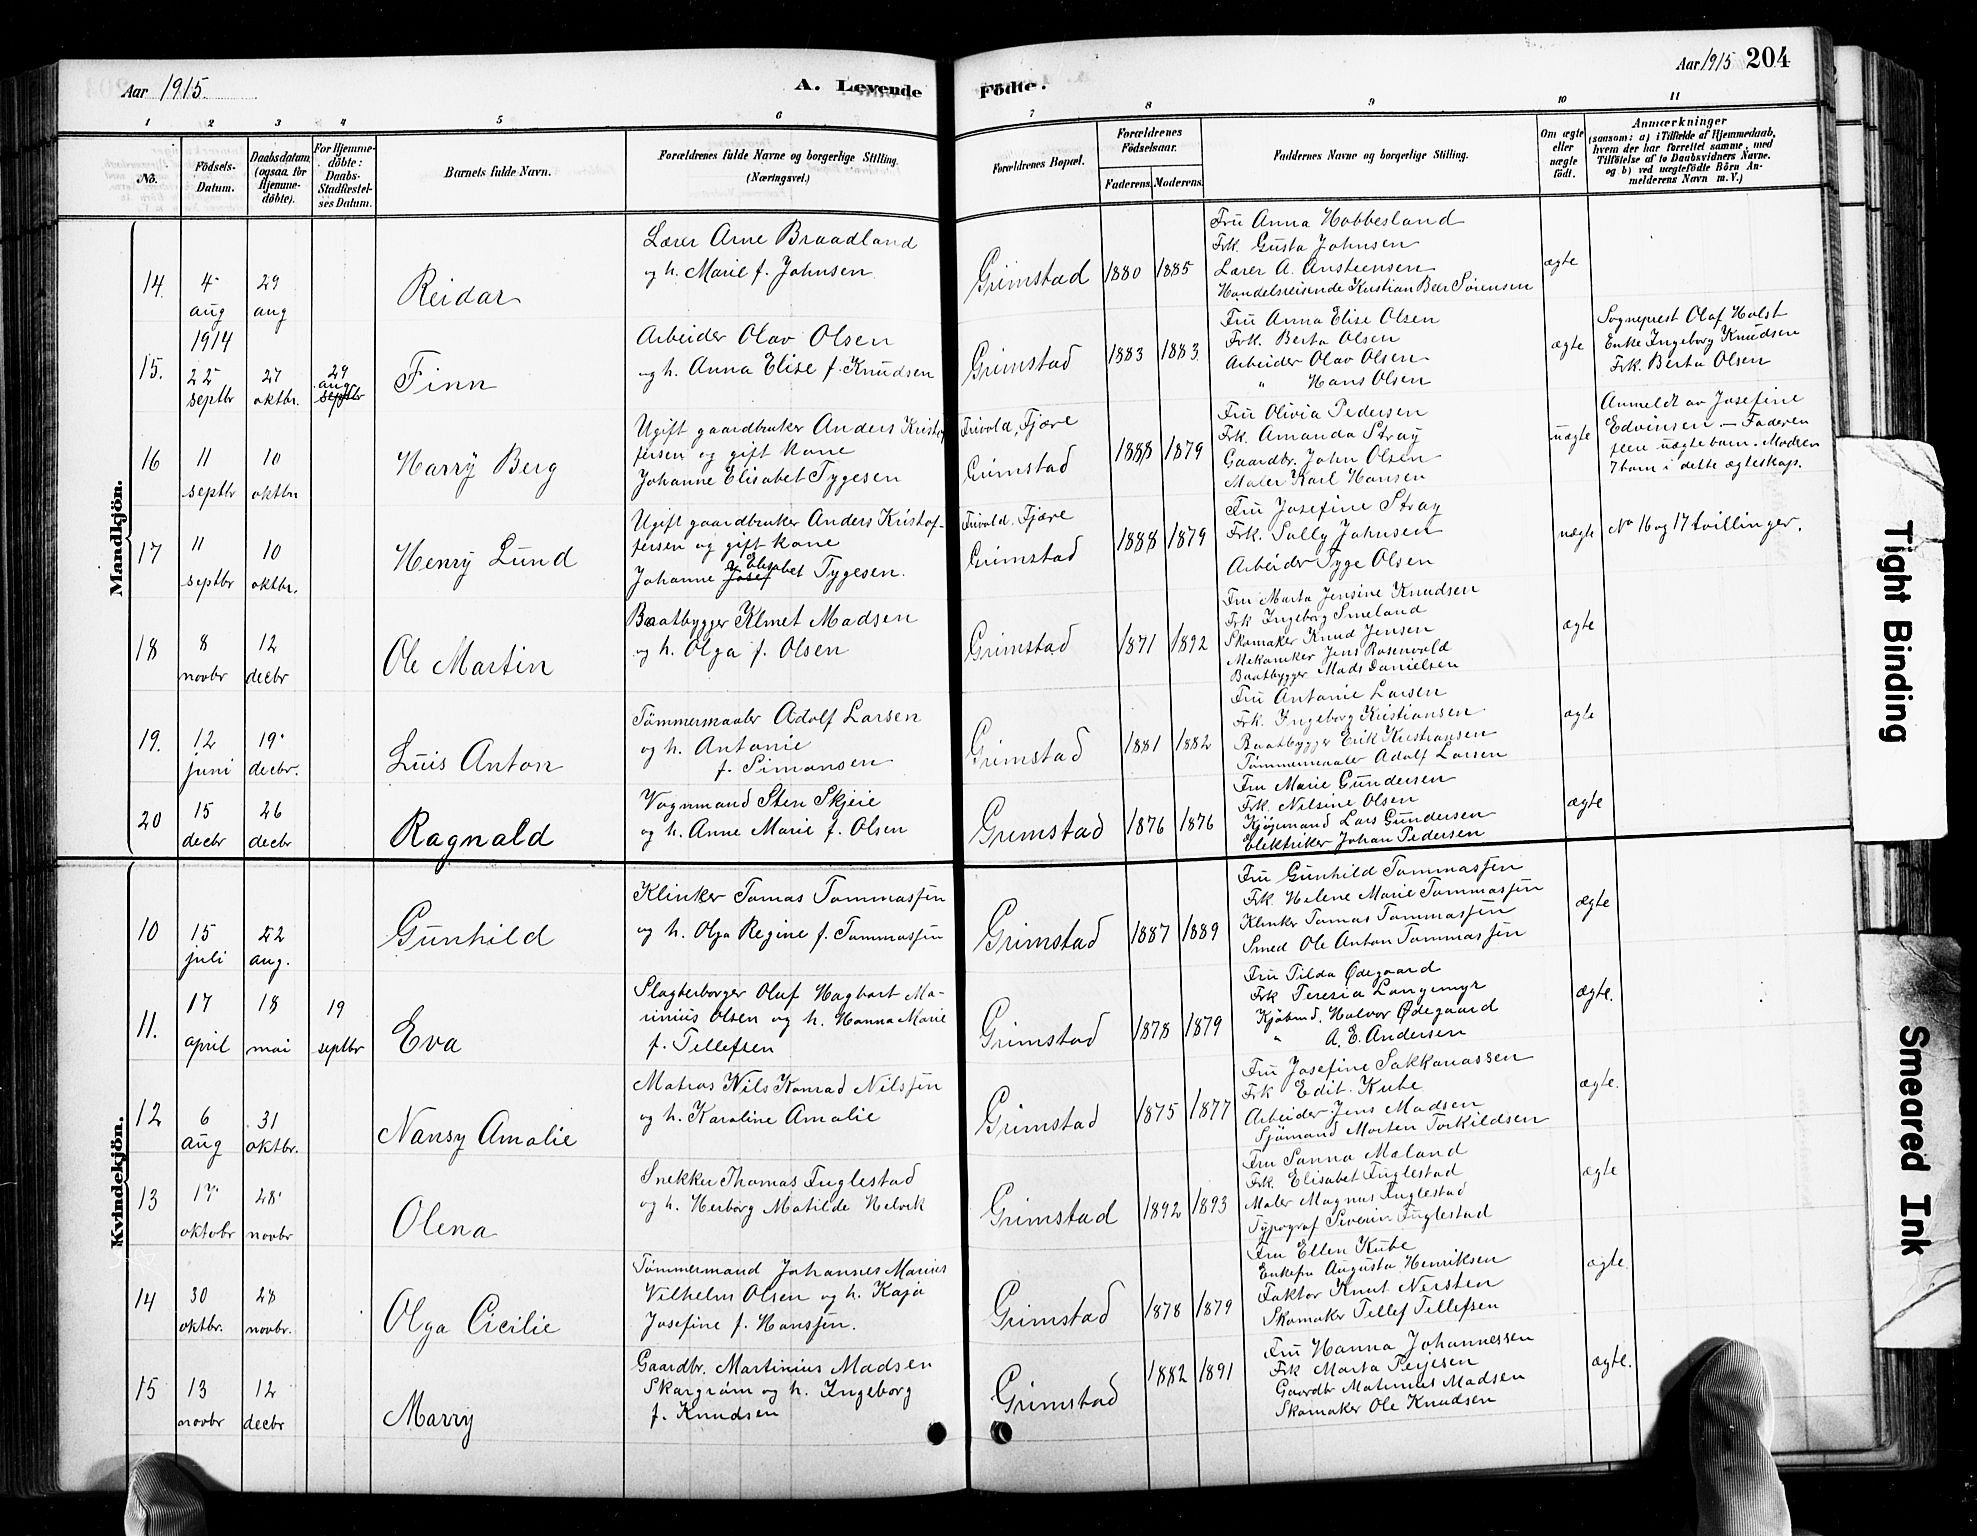 Aar 1915.
A. Levende
Fødte.
Aar 1915 204
1 2 3 4 5 6 7 8 9 10 11
No.
Födsels-
Datum.
Daabsdatum
(ogsaa for
Hjemme-
döbte).
For Hjemme-
döbte:
Daabs-
Stadfæstel-
ses Datum.
Barnets fulde Navn.
Forældrenes fulde Navne og borgerlige Stilling.
(Næringsvei.)
Forældrenes Bopæl.
Forældrenes
Födselsaar.
Faderens. Moderens.
Faddernes Navne og borgerlige Stilling.
Om ægte
eller
uægte
födt.
Anmærkninger
(saasom: a) i Tilfælde af Hjemmedaab,
hvem der har forrettet samme, med
Tilföielse af to Daabsvidners Navne.
og b) ved uægtefödte Börn An-
melderens Navn m. V.)
Mandkjön.
14. 4 aug 29 aug
Reidar
Lærer Arne Braadland
og h. Marie f. Johnsen
Grimstad 1880 1885
Fru Anna Hobbesland
Frk. Gusta Johnsen
Lærer A. Ansteensen
Handelsreisende Kristian Bær Sørensen
ægte
15. 1914 22 septbr 27 oktbr. 29 aug septbr
Finn
Arbeider Olav Olsen
og h. Anna Elise f. Knudsen
Grimstad 1883 1883
Fru Anna Elise Olsen
Frk. Berta Olsen
Arbeider Olav Olsen
" Hans Olsen
ægte
Sogneprest Olaf Holst
Enke Ingeborg Knudsen
Frk. Berta Olsen
16 11 septbr 10 oktbr
Harry Berg
Ugift gaardbruker Anders Kristof
fersen og gift kone
Johanne Elisabet Tygesen
Frivold, Fjære
Grimstad
1888 1879
Fru Olivia Pedersen
Frk. Amanda Stray
Gaardbr. John Olsen
Maler Karl Hansen
uægte
Anmeldt av Josefine
Edvinsen – Faderen
flere uægte barn. Modren
7 barn i dette ægteskap.
17 11 septbr 10 oktbr.
Henry Lund
Ugift gaardbruker Anders Kristof-
fersen og gift kone
Johanne Josef Elisabet Tygesen.
Frivold, Fjære
Grimstad
1888 1879
Fru Josefine Stray
Frk. Sally Johnsen
Arbeider Tyge Olsen
uægte
No 16 og 17 tvillinger.
18 8 novbr 12 decbr
Ole Martin
Baatbygger Klmet Madsen
og h. Olga f. Olsen
Grimstad 1871 1892
Fru Marta Jensine Knudsen
Frk Ingeborg Smeland
Skomaker Knud Jensen
Mekaniker Jens Rosenvold
Baatbygger Mads Danielsen
ægte
19. 12 juni 19 decbr.
Luis Anton
Tømmermaaler Adolf Larsen
og h. Antonie
f. Simonsen
Grimstad 1881 1882
Fru Antonie Larsen
Frk. Ingeborg Kristiansen
Baatbygger Erik Kristiansen
Tømmermaaler Adolf Larsen
ægte
20 15 decbr 26 decbr
Ragnald
Vognmand Sten Skjeie
og h. Anne Marie f. Olsen
Grimstad 1876 1876
Fru Marie Gundersen
Frk. Nilsine Olsen
Kjøpmand Lars Gundersen
Elektriker Johan Pedersen
ægte
Kvindekjön.
10 15 juli 22 aug.
Gunhild
Klinker Tomas Tommassen
og h. Olga Regine f. Tommassen
Grimstad 1887 1889
Fru Gunhild Tommassen
Frk. Helene Marie Tommassen
Klinker Tomas Tommassen
Smed Ole Anton Tommassen
ægte
11. 17 april 18 mai 19 septbr
Eva
Slagterborger Oluf Hagbart Ma-
rinius Olsen og h. Hanna Marie
f. Tellefsen
Grimstad 1878 1879
Fru Tilda Ødegaard
Frk Teresia Langemyr
Kjøbmd. Halvor Ødegaard
" A. E. Andersen
ægte.
12 6 aug 31 oktbr.
Nansy Amalie
Matros Nils Konrad Nilssen
og h. Karoline Amalie
Grimstad 1875 1877
Fru Josefine Sakkariassen
Frk Edit Kube
Arbeider Jens Madsen
Sjømand Morten Torkildsen
ægte.
13 17 oktobr 28 novbr
Olena
Snekker Thomas Fuglestad
og h. Herborg Matilde Helvik
Grimstad 1892 1893
Fru Sanna Maland
Frk. Elisabet Fuglestad
Maler Magnus Fuglestad
Typograf Severin Fuglestad
ægte
14 30 oktbr. 28 novbr.
Olga Cicilie
Tømmermand Johannes Marius
Vilhelm Olsen og h. Kaja
Josefine f. Hanssen.
Grimstad 1878 1879
Fru Ellen Kube
Enkefru Augusta Henriksen
Faktor Knut Nersten
Skomaker Tellef Tellefsen
ægte.
15 13 novbr 12 decbr
Marry
Gaardbr. Martinius Madsen
og h. Ingeborg
f. Knudsen
Grimstad 1882 1891
Fru Hanna Johannessen
Frk Marta Terjesen
Gaardbr Matinius Madsen
Skomaker Ole Knudsen
ægte.
Tight Binding
Smeared Ink